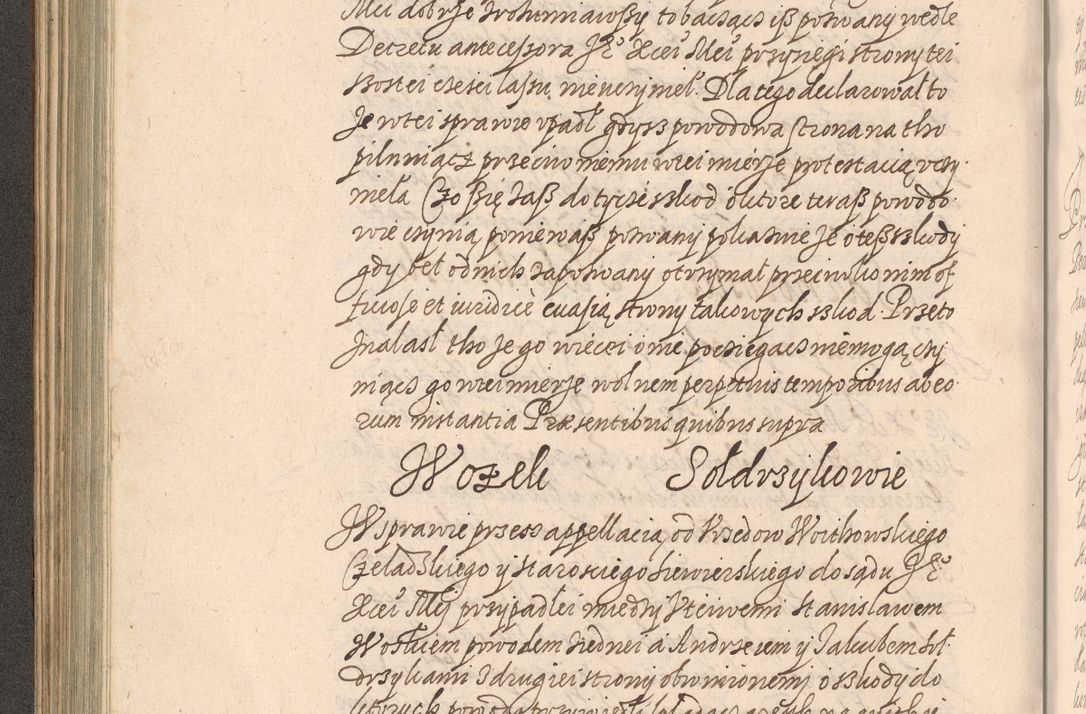 Mci dobrze zrozumiawszy tobacząc isz pozwany wedle
Decretu antecessora JE° Xcei Mci przysięgi strony tei
szostei części łasztu nieuczynieł. Dlatego declarował to
Je wtei sprawie vpadł gdysz powodowa strona na tho
pilnuiącz przeciwo niemu wtei mierze protestacią vczy
nieła Czo się zasz dotycze szkod oktore terasz powodo
wie czynią, poniewasz pozwany pokazuie Je o tesz szkody
gdy beł od nich zapozwany otrzymał przeciwko nim of
ficiose et iuridice euasią, strony takowych szkod. Przeto
Jnalasł tho Je go wiecei o nie pociegacz niemogą, czy
niącz go wtei mierze wolnem perpetuis temporibus ab eo
rum instantia Præsentibus quibus supra
Wozek Sołdrzykowie
W sprawie przesz appellacią, od Vrzedow Woithowskiego
Czeladskiego y starosciego siewierskiego do sądu JE°
Xcei Mći przypadłei między Vcciwemi Stanisławem
Woskiem powodem ziednei a Andrzeiem y Jakubem Soł
drzykami z drugiei strony obwinionemi o szkody do